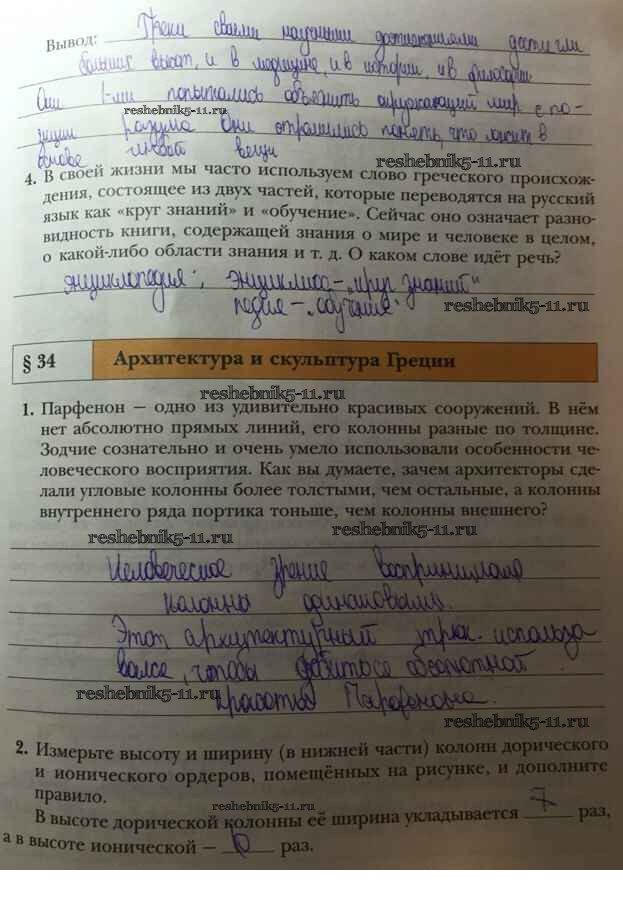 Вывод: Греки своими научными достижениями достигли
больших высот, и в медицине, и в истории, и в философии
Они 1-ми попытались объяснить окружающий мир с по-
reshebnik5-11.ru
зиции разума Они стремились понять, что лежит в
основе любой вещи
reshebnik5-11.ru
4. В своей жизни мы часто используем слово греческого происхож-
дения, состоящее из двух частей, которые переводятся на русский
язык как «круг знаний» и «обучение». Сейчас оно означает разно-
видность книги, содержащей знания о мире и человеке в целом,
о какой-либо области знания и т. д. О каком слове идёт речь?
энциклопедия", энциклиос-„круг знаний"
педия-„обучение"
reshebnik5-11.ru
§ 34 Архитектура и скульптура Греции
reshebnik5-11.ru
1. Парфенон — одно из удивительно красивых сооружений. В нём
нет абсолютно прямых линий, его колонны разные по толщине.
Зодчие сознательно и очень умело использовали особенности че-
ловеческого восприятия. Как вы думаете, зачем архитекторы сде-
лали угловые колонны более толстыми, чем остальные, а колонны
внутреннего ряда портика тоньше, чем колонны внешнего?
reshebnik5-11.ru
reshebnik5-11.ru
Человеческое зрение воспринимало
колонны одинаковыми.
Этот архитектурный трюк использо
вался, чтобы добиться абсолютной
красоты Парфенона.
reshebnik5-11.ru
reshebnik5-11.ru
2. Измерьте высоту и ширину (в нижней части) колонн дорического
и ионического ордеров, помещённых на рисунке, и дополните
правило.
reshebnik5-11.ru
В высоте дорической колонны её ширина укладывается 7 раз,
а в высоте ионической — 6 раз.